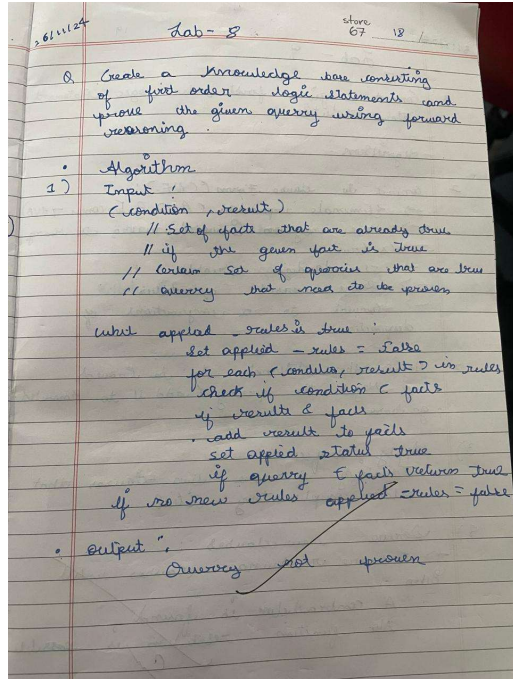 26/11/24
Lab - 8
store
67 18 /
Q Create a Knowledge base consisting
of first order logic statements and
prove the given querry using forward
reasoning.
• Algorithm
1) Input :
(condition, result)
// Set of facts that are already true
// if the given fact is true
// Certain set of that are true
// querry that need to be proven
applied - rules is true :
Set applied - rules = False
for each (condition, result) in rules
check if condition ∈ facts
if result & facts
. add result to facts
set applied status true
if querry ∈ facts return true
If no new rules applied - rules = false
• output :
Querry not proven